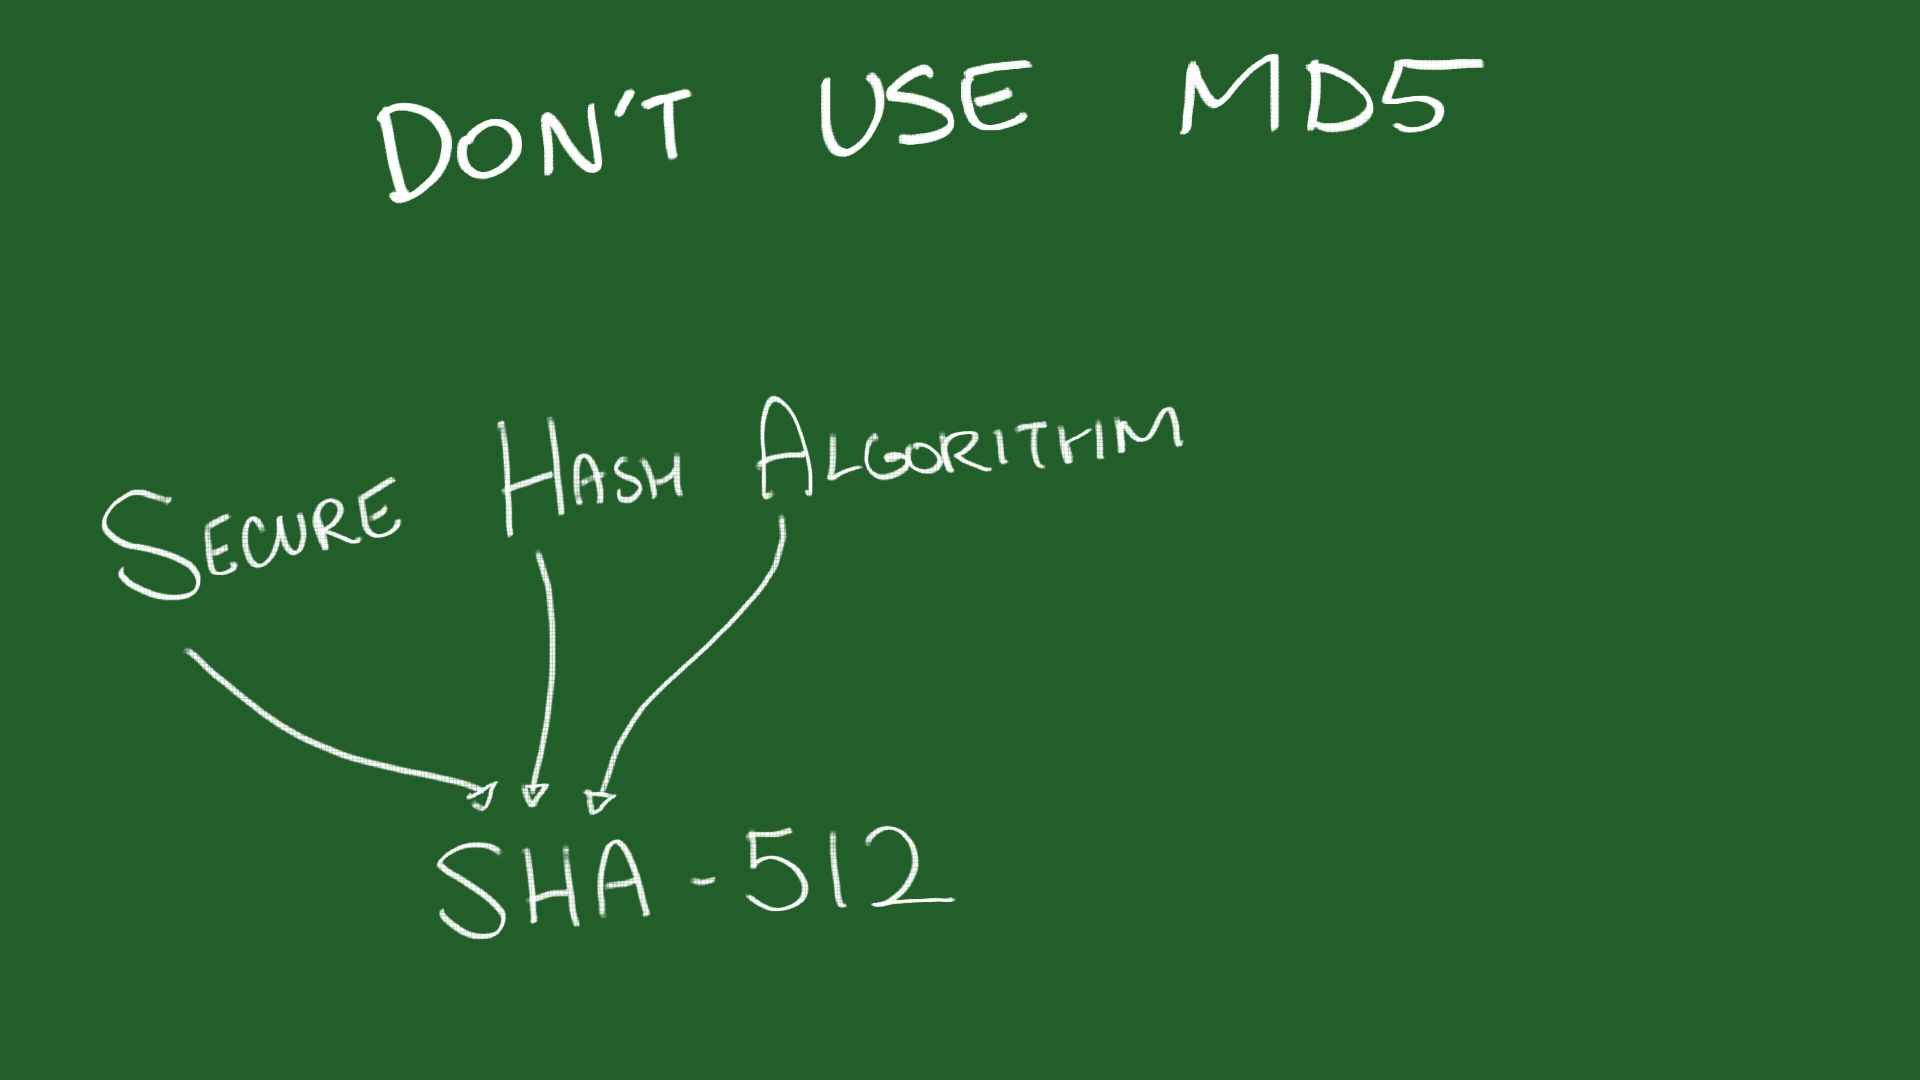 DON'T USE MD5
SECURE HASH ALGORITHM
SHA-512